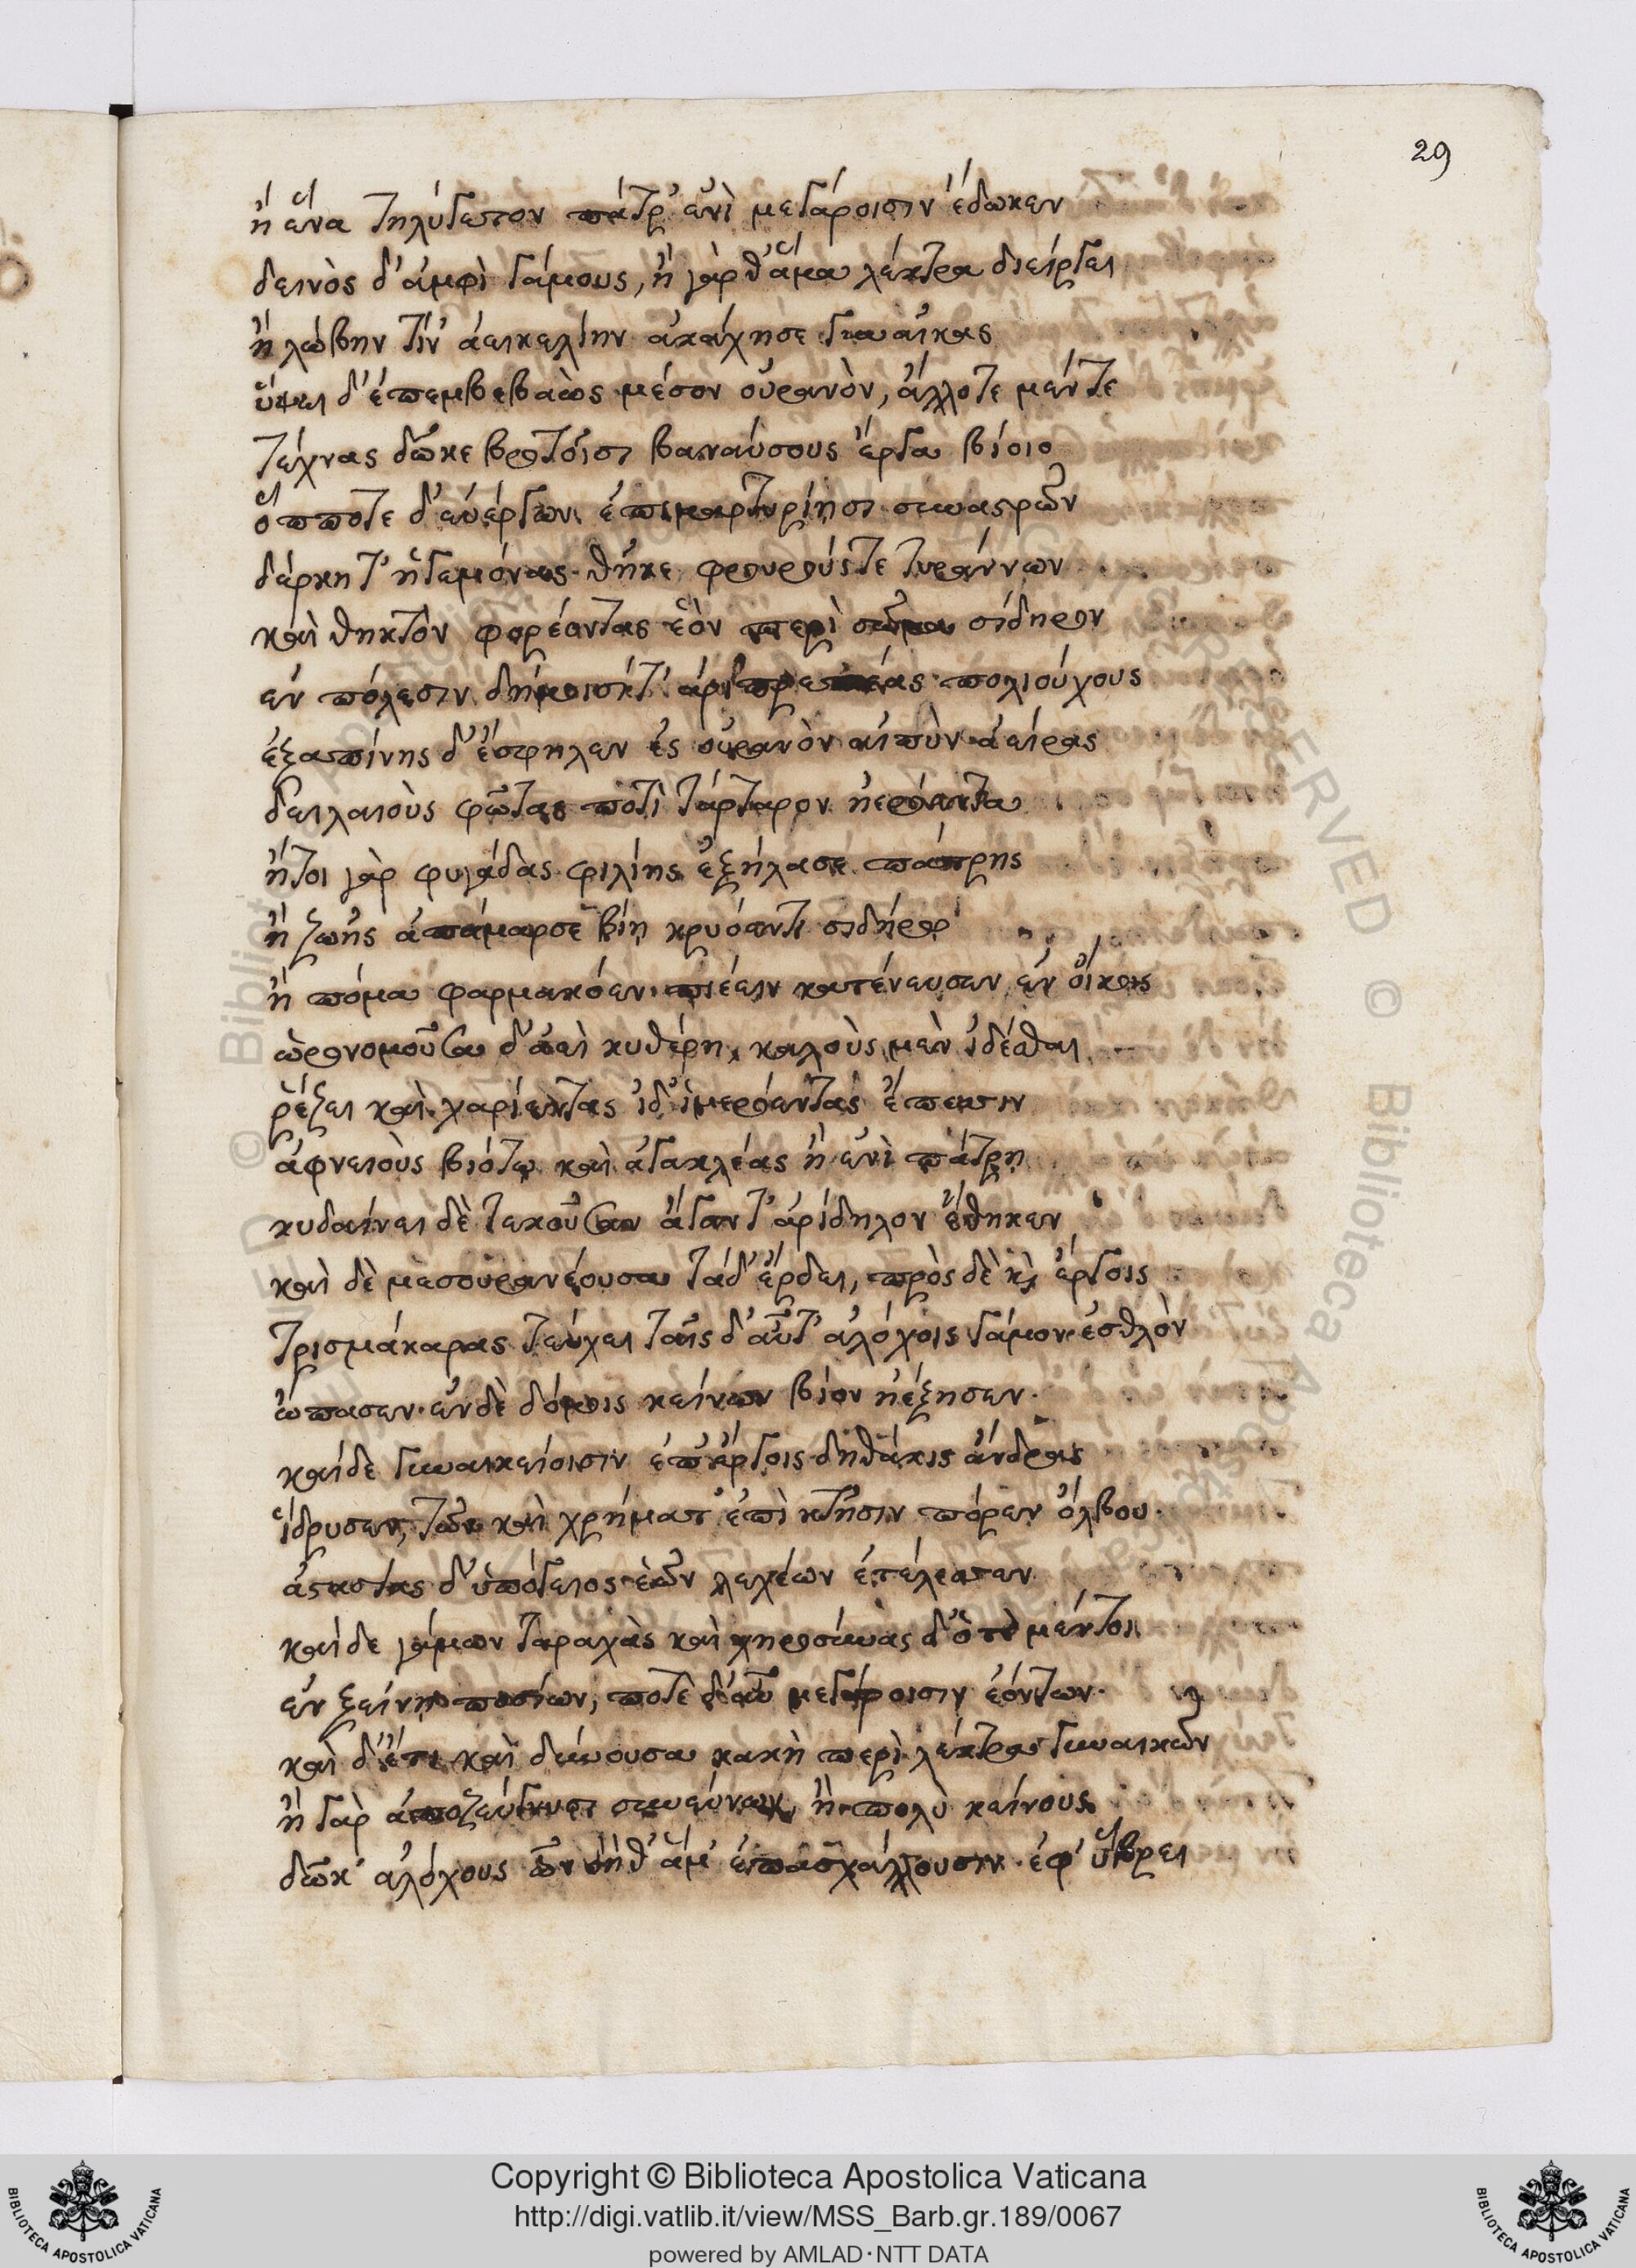 29
ἢ ἕνα τηλύγετον πάτρ' ἐνὶ μεγάροισιν ἔδωκεν
δεινὸς δ' ἀμφὶ γάμους, ἢ γὰρ θ' ἅμα λέκτρα διείργει
ἢ λώβην τίν' ἀεικελίην ἀκάχησε γυναῖκας
ὕψει δ' ἐπεμβεβαὼς μέσον οὐρανὸν, ἄλλοτε μέντε
τέχνας δῶκε βροτοῖσι βαναύσους ἔργα βίοιο
ὅπποτε δ' εὐέργων ἐπιμαρτυρίησι συναστρῶν
δέρκητ' ἡγεμόνας θῆκε φρουρούς τε τυράννων
καὶ θηκτὸν φορέοντας ἑὸν περὶ σῶμα σίδηρον
ἐν πόλεσιν δήμοισί τ' ἀριπρεπέας πολιούχους
ἐξαπίνης δ' ἔσφηλεν ἐς οὐρανὸν αἰπὺν ἀείρας
δειλαιοὺς φῶτας ποτὶ τάρταρον ἠερόεντα
ἤτοι γὰρ φυγάδας φιλίης ἐξήλασε πάτρης
ἢ ζωῆς ἀπάμερσε βίη κρυόεντι σιδήρῳ
ἢ πόμα φαρμακόεν πιέειν κατένευσεν ἐν οἴκοις
ὡρονομοῦσα δ' ἀεὶ κυθέρη, καλοὺς μὲν ἰδέσθαι
ῥέζει καὶ χαρίεντας ἰδ' ἱμερόεντας ἔπεσσιν
ἀφνειοὺς βιότῳ καὶ ἀγακλέας ἢ ἐνὶ πάτρῃ
κυδαίνει δὲ τεκοῦσαν ἄγαν τ' ἀρίδηλον ἔθηκεν
καὶ δὲ μεσουρανέουσα τάδ' ἔρδει, πρὸς δὲ καὶ ἔργοις
τρισμάκαρας τεύχει ταῖς δ' αὖτ' ἀλόχοις γάμον ἐσθλὸν
ὤπασεν. ἐν δὲ δόμοις κείνων βίον ἠέξησεν.
καί δε γυναικείοισιν ἐπ' ἔργοις δηθάκις ἄνδρας
ἵδρυσεν, τῶν καὶ χρήματ' ἐπὶ κτῆσιν πόρεν ὄλβου.
δ' ὑπόγειος ἑῶν λεχέων ἐτέλεσσεν
καί δε γάμων ταραχὰς καὶ χηροσύνας δ' ὁτὲ μέντοι
ἐν ξείνῃ ποσίων, ποτὲ δ' αὖ μεγάροισιν ἐόντων.
καὶ δ' ἔτι καὶ δύνουσα κακὴ περὶ λέκτρα γυναικῶν
ἢ γὰρ ἀποζεύγνυσι συνεύνων, ἢ πολὺ κείνους
δῶκ' ἀλόχους ὧν δὴθ' ἅμ' ἐπασχάλλουσιν ἐφ' ὕβρει
Copyright © Biblioteca Apostolica Vaticana
http://digi.vatlib.it/view/MSS_Barb.gr.189/0067
powered by AMLAD·NTT DATA